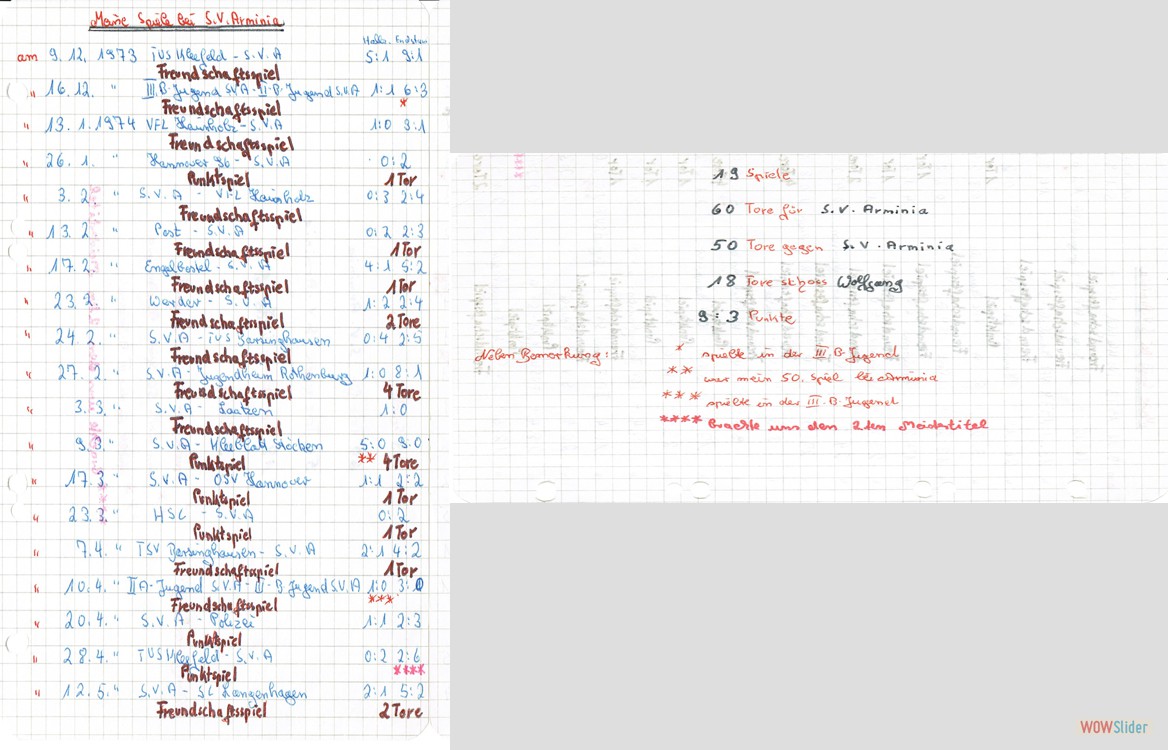 Meine Spiele bei S.V. Arminia
Halbz. Endstan
am 9.12.1973 TUS Kleefeld - S.V.A 5:1 9:1
Freundschaftsspiel
" 16.12. " III.B.Jugend S.V.A - II.B.Jugend S.V.A 1:1 6:3
Freundschaftsspiel *
" 13.1.1974 VFL Hainholz - S.V.A 1:0 3:1
Freundschaftsspiel
" 26.1. " Hannover 96 - S.V.A 0:2
Punktspiel 1 Tor
" 3.2. " S.V.A - VFL Hainholz 0:3 2:4
Freundschaftsspiel
" 13.2. " Post - S.V.A 0:2 2:3
Freundschaftsspiel 1 Tor
" 17.2. " Engelbostel - S.V.A 4:1 5:2
Freundschaftsspiel 1 Tor
" 23.2. " Werder - S.V.A 1:2 2:4
Freundschaftsspiel 2 Tore
" 24.2. " S.V.A - TUS Barsinghausen 0:4 2:5
Freundschaftsspiel
" 27.2. " S.V.A - Jugendheim Rothenburg 1:0 8:1
Freundschaftsspiel 4 Tore
" 3.3. " S.V.A - Laatzen 1:0
Freundschaftsspiel
" 9.3. " S.V.A - Kleeblatt Stöcken 5:0 9:0
Punktspiel ** 4 Tore
" 17.3. " S.V.A - OSV Hannover 1:1 2:2
Punktspiel 1 Tor
" 23.3. " HSC - S.V.A 0:2
Punktspiel 1 Tor
" 7.4. " TSV Barsinghausen - S.V.A 2:1 4:2
Freundschaftsspiel 1 Tor
" 10.4. " II A-Jugend S.V.A - III-B Jugend S.V.A 1:0 3:0
Freundschaftsspiel ***
" 20.4. " S.V.A - Polizei 1:1 2:3
Punktspiel
" 28.4. " TUS Kleefeld - S.V.A 0:2 2:6
Punktspiel ****
" 12.5. " S.V.A - SC Langenhagen 2:1 5:2
Freundschaftsspiel 2 Tore
19 Spiele
60 Tore für S.V. Arminia
50 Tore gegen S.V. Arminia
18 Tore schoss Wolfgang
9:3 Punkte
Neben Bemerkung: * spielte in der III.B.Jugend
** war mein 50. Spiel bei Arminia
*** spielte in der III.B.Jugend
**** Brachte uns den 2ten Meistertitel
WOWSlider